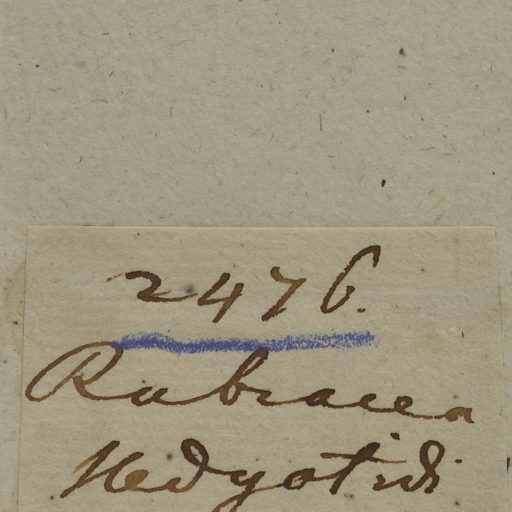 2476.
Rubiacea
Hedyotidi